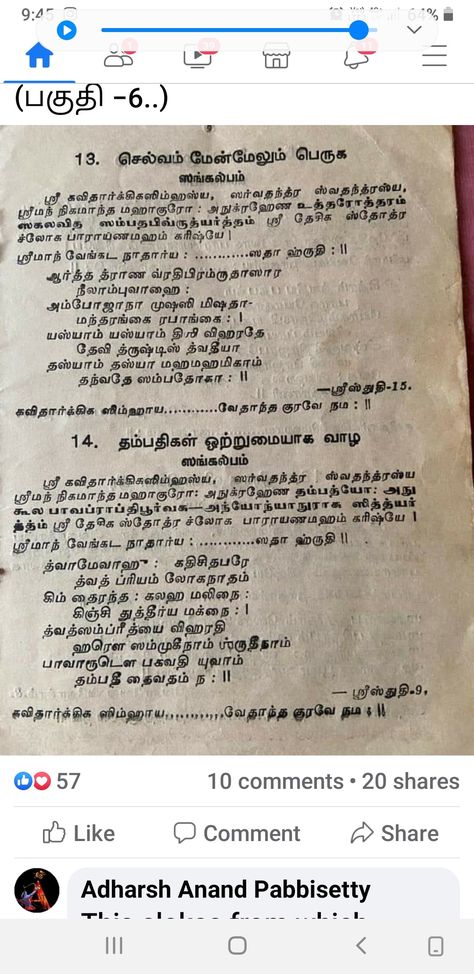 9:45
64%
(பகுதி -6..)
9
13. செல்வம் மேன்மேலும் பெருக
ஸங்கல்பம்
ஸ்ரீ கவிதார்க்கிகஸிம்ஹஸ்ய, ஸர்வதந்த்ர ஸ்வதந்த்ரஸ்ய,
ஸ்ரீமந் நிகமாந்த மஹாகுரோ : அநுக்ரஹேண உத்தரோத்தரம்
ஸகலவித ஸம்பதபிவ்ருத்யர்த்தம் ஸ்ரீ தேசிக ஸ்தோத்ர
ச்லோக பாராயணமஹம் கரிஷ்யே |
ஸ்ரீமாந் வேங்கட நாதார்ய : ............ஸதா ஹ்ருதி : ||
ஆர்த்த த்ராண வ்ரதிபிரம்ருதாஸார
நீலாம்புவாஹை :
அம்போஜாநா முஷஸி மிஷதா-
மந்தரங்கை ரபாங்கை : |
யஸ்யாம் யஸ்யாம் திசி விஹரதே
தேவி த்ருஷ்டிஸ் த்வதீயா
தஸ்யாம் தஸ்யா மஹமஹமிகாம்
தந்வதே ஸம்பதோகா : ||
—ஸ்ரீஸ்துதி-15.
கவிதார்க்கிக ஸிம்ஹாய...........வேதாந்த குரவே நம : ||
14. தம்பதிகள் ஒற்றுமையாக வாழ
ஸங்கல்பம்
ஸ்ரீ கவிதார்க்கிகஸிம்ஹஸ்ய, ஸர்வதந்த்ர ஸ்வதந்த்ரஸ்ய
ஸ்ரீமந் நிகமாந்த மஹாகுரோ: அநுக்ரஹேண தம்பத்யோ: அநு
கூல பாவப்ராப்திபூர்வக—அந்யோந்யாநுராக ஸித்த்யர்
த்தம் ஸ்ரீ தேசிக ஸ்தோத்ர ச்லோக பாராயணமஹம் கரிஷ்யே |
ஸ்ரீமாந் வேங்கட நாதார்ய : ............ஸதா ஹ்ருதி ||
த்வாமேவாஹு : கதிசிதபரே
த்வத் ப்ரியம் லோகநாதம்
கிம் தைரந்த : கலஹ மலிநை :
கிஞ்சி துத்தீர்ய மக்நை : |
த்வத்ஸம்ப்ரீத்யை விஹரதி
ஹரௌ ஸம்முகீநாம் ச்ருதீநாம்
பாவாரூடௌ பகவதி யுவாம்
தம்பதீ தைவதம் ந : ||
— ஸ்ரீஸ்துதி-9,
கவிதார்க்கிக ஸிம்ஹாய...........வேதாந்த குரவே நம : ||
57
10 comments • 20 shares
Like
Comment
Share
Adharsh Anand Pabbisetty
This slokas from which